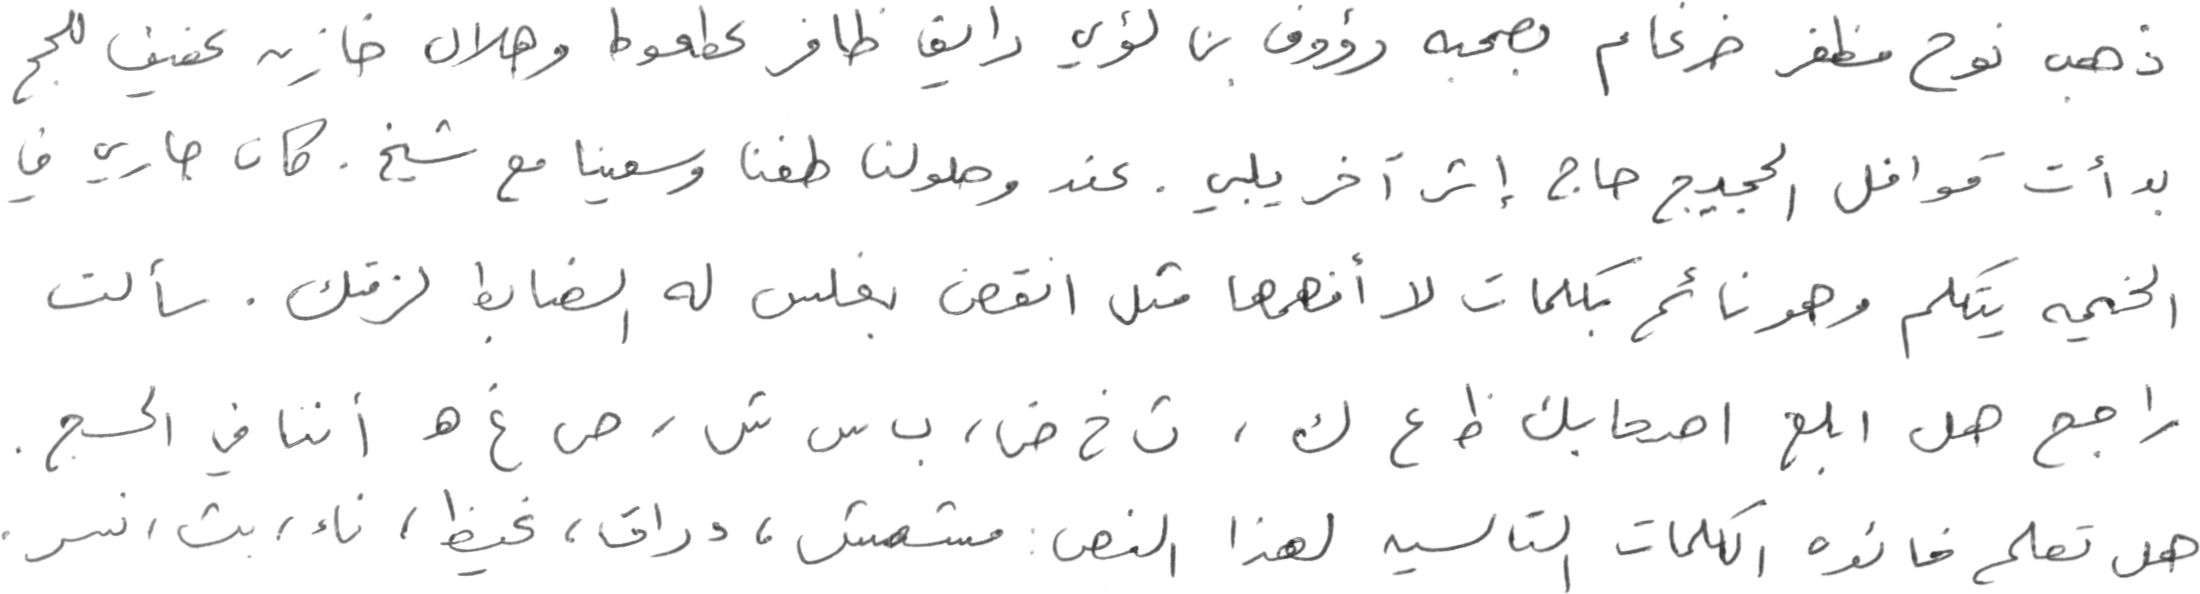 ذهب نوح مظفر ضرغام بصحبه رؤوف بن لؤي رايق ظافر عطعوط وهلال خازن عفيف للحج
بدأت قوافل الحجيج حاج إثر آخر يلبي . عند وصولنا طفنا وسعينا مع شيخ . كان جاري في
الخيمه يتكلم وهو نائم بكلمات لا أفهمها مثل انقض بغلس له الضابط لزقك . سألت
راجع هل ابلغ اصحابك ظ ع ك ، ث خ ض ، ب س ش ، ص غ ه أننا في الحج .
هل تعلم فائده الكلمات التاليه لهذا النص : مشمش ، دراق ، غيظ ، ناء ، بث ، نسر .